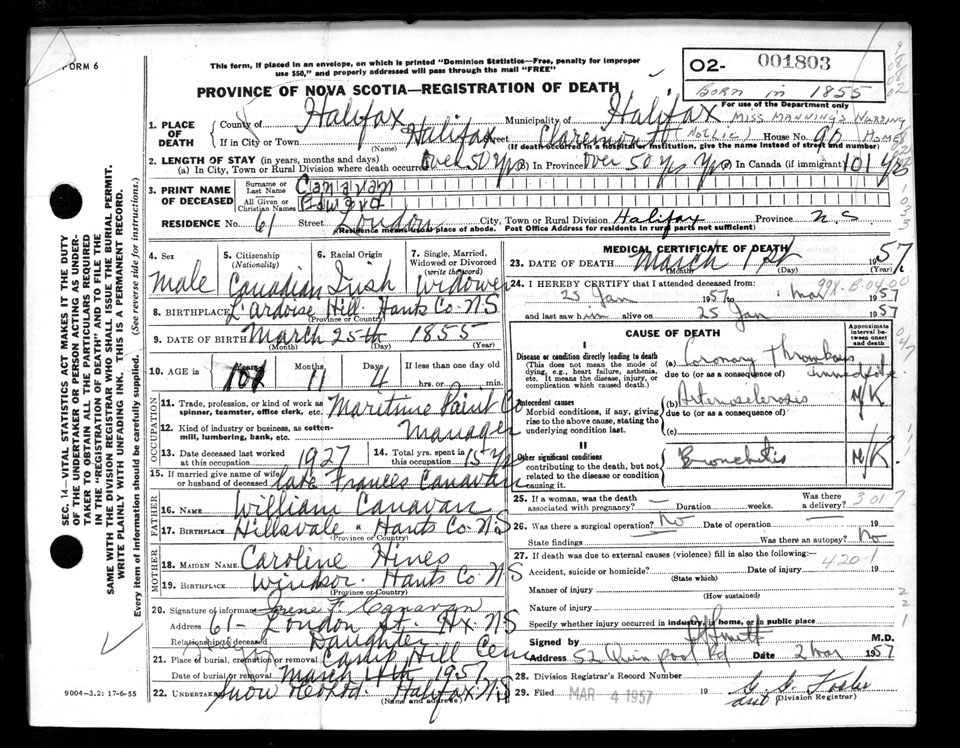 FORM 6
This form, if placed in an envelope, on which is printed "Dominion Statistics—Free, penalty for improper
use $50," and properly addressed will pass through the mail "FREE"
PROVINCE OF NOVA SCOTIA—REGISTRATION OF DEATH
02- 001803
BORN in 1855
For use of the Department only
1. PLACE OF DEATH
County of Halifax
Municipality of Halifax
MISS MANNING'S NURSING HOME
If in City or Town Halifax (Name) Street Claremont (HOLLIS) House No. 90
(If death occurred in a hospital or institution, give the name instead of street and number)
2. LENGTH OF STAY (in years, months and days)
(a) In City, Town or Rural Division where death occurred over 50 yrs (b) In Province over 50 yrs (c) In Canada (if immigrant) 101 yrs
3. PRINT NAME OF DECEASED
Surname or Last Name Canavan
All Given or Christian Names Edward
RESIDENCE No. 61 Street London City, Town or Rural Division Halifax Province N.S
(Residence means usual place of abode. Post Office Address for residents in rural parts not sufficient)
4. Sex
Male
5. Citizenship (Nationality)
Canadian
6. Racial Origin
Irish
7. Single, Married, Widowed or Divorced (write the word)
Widower
8. BIRTHPLACE L'ardoise Hill. Hants Co. NS
(Province or Country)
9. DATE OF BIRTH March 25th 1855
(Month) (Day) (Year)
10. AGE Years 101 Months 11 Days 4 If less than one day old
hrs. or min.
OCCUPATION
11. Trade, profession, or kind of work as spinner, teamster, office clerk, etc. Maritime Paint Co
12. Kind of industry or business, as cotten-mill, lumbering, bank, etc. Manager
13. Date deceased last worked at this occupation 1927
14. Total yrs. spent in this occupation 15 yrs
15. If married give name of wife or husband of deceased late Frances Canavan
FATHER
16. NAME William Canavan
17. BIRTHPLACE Hillsvale Hants Co. NS
(Province or Country)
MOTHER
18. MAIDEN NAME Caroline Hines
19. BIRTHPLACE Windsor. Hants Co. NS
(Province or Country)
20. Signature of informant Irene F Canavan
Address 61- London St. Hx. NS
Relationship to deceased Daughter
21. Place of burial, cremation or removal Camp Hill Cem
Date of burial or removal March 4th 1957
22. Undertaker Snow & Co Ltd. Halifax NS
(Name and address)
MEDICAL CERTIFICATE OF DEATH
23. DATE OF DEATH March 1st 1957
(Month) (Day) (Year)
24. I HEREBY CERTIFY that I attended deceased from:
25 Jan 1957 to 1 Mar 1957
99X-B-04.00
and last saw him alive on 25 Jan 1957
CAUSE OF DEATH
Approximate interval between onset and death
I
Disease or condition directly leading to death
(This does not mean the mode of dying, e.g., heart failure, asthenia, etc. It means the disease, injury, or complication which caused death.)
(a) Coronary Thrombosis immediate
due to (or as a consequence of)
Antecedent causes
Morbid conditions, if any, giving rise to the above cause, stating the underlying condition last.
(b) Arteriosclerosis N/K
due to (or as a consequence of)
(c)
II
Other significant conditions contributing to the death, but not related to the disease or condition causing it.
Bronchitis N/K
25. If a woman, was the death associated with pregnancy? — Duration weeks. Was there a delivery? —
3017
26. Was there a surgical operation? No Date of operation — 19
State findings Was there an autopsy? No
27. If death was due to external causes (violence) fill in also the following:—
Accident, suicide or homicide? Date of injury 19
(State which)
420-1
Manner of injury
(How sustained)
Nature of injury
Specify whether injury occurred in industry, in home, or in public place
Signed by M.D.
Address 52 Quinpool Rd Date 2 Mar 1957
28. Division Registrar's Record Number
29. Filed MAR 4 1957 19
asst (Division Registrar)
9004—3.2: 17-6-55
SEC. 14—VITAL STATISTICS ACT MAKES IT THE DUTY
OF THE UNDERTAKER OR PERSON ACTING AS UNDER-
TAKER TO OBTAIN ALL THE PARTICULARS REQUIRED
IN THE "REGISTRATION OF DEATH" AND TO FILE THE
SAME WITH THE DIVISION REGISTRAR WHO SHALL ISSUE THE BURIAL PERMIT.
WRITE PLAINLY WITH UNFADING INK. THIS IS A PERMANENT RECORD.
Every item of information should be carefully supplied. (See reverse side for instructions.)